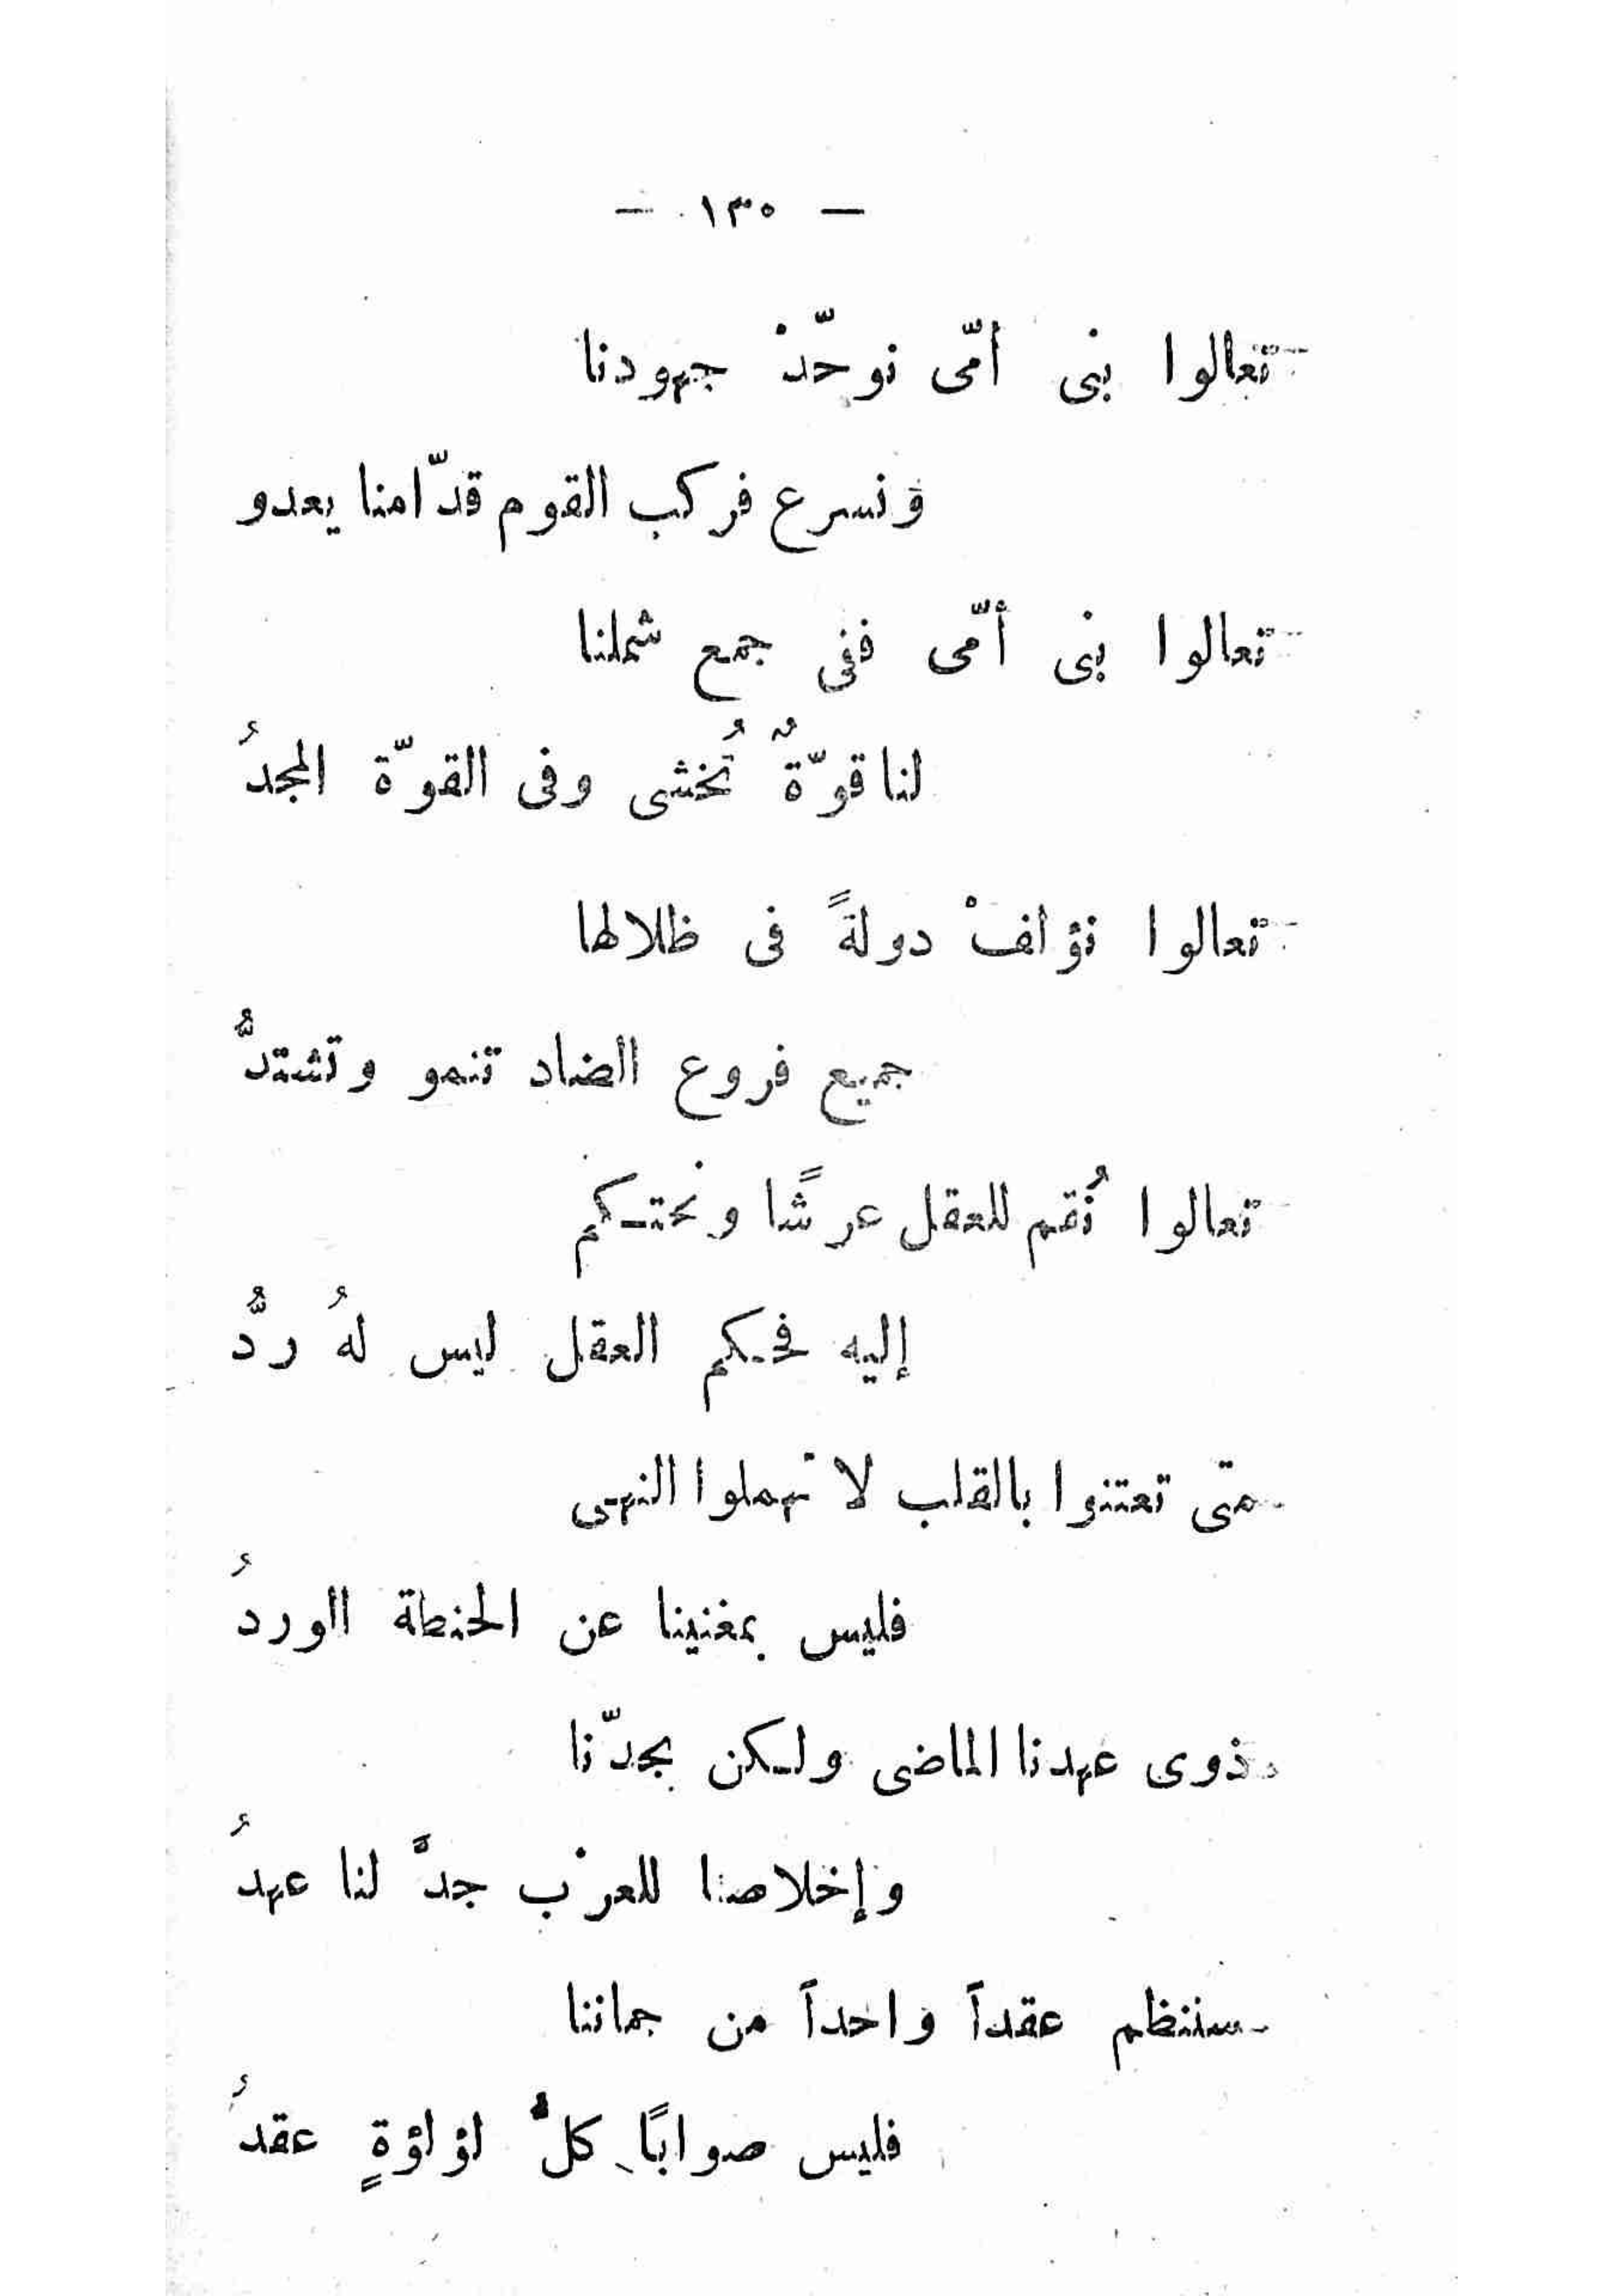 — ١٣٠ —
تعالوا بنى أمّى نوحّدْ جهودنا
ونسرع فركب القوم قدّامنا يعدو
تعالوا بنى أمّى ففى جمع شملنا
لنا قوّةٌ تُخشى وفى القوّة المجدُ
تعالوا نؤلفْ دولةً فى ظلالها
جميع فروع الضاد تنمو وتشتدُّ
تعالوا نُقم للعقل عرشًا ونحتكم
إليه فحكم العقل ليس لهُ ردُّ
متى تعتنوا بالقلب لا تهملوا النهى
فليس بمغنينا عن الحنطة الوردُ
ذوى عهدنا الماضى ولكن بجدّنا
وإخلاصنا للعرْب جدَّ لنا عهدُ
سننظم عقداً واحداً من جماننا
فليس صوابًا كلُّ لؤلؤةٍ عقدُ